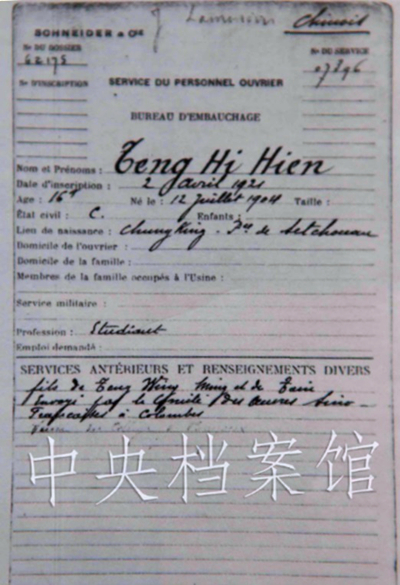 Chinois
SCHNEIDER & Cie
No DU DOSSIER
No DU SERVICE
62175
07396
No D'INSCRIPTION
SERVICE DU PERSONNEL OUVRIER
BUREAU D'EMBAUCHAGE
Nom et Prénoms : Teng Hi Hien
Date d'inscription : 2 avril 1921
Age : 16 Né le : 12 Juillet 1904 Taille :
État civil : C. Enfants :
Lieu de naissance : Chung King - de Setchouan
Domicile de l'ouvrier :
Domicile de la famille :
Membres de la famille occupés à l'Usine :
Service militaire :
Profession : Etudiant
Emploi demandé :
SERVICES ANTÉRIEURS ET RENSEIGNEMENTS DIVERS
fils de Teng Wen Ming et de
Envoyé par le Comité des œuvres Sino-
Françaises à Colombes
中央档案馆